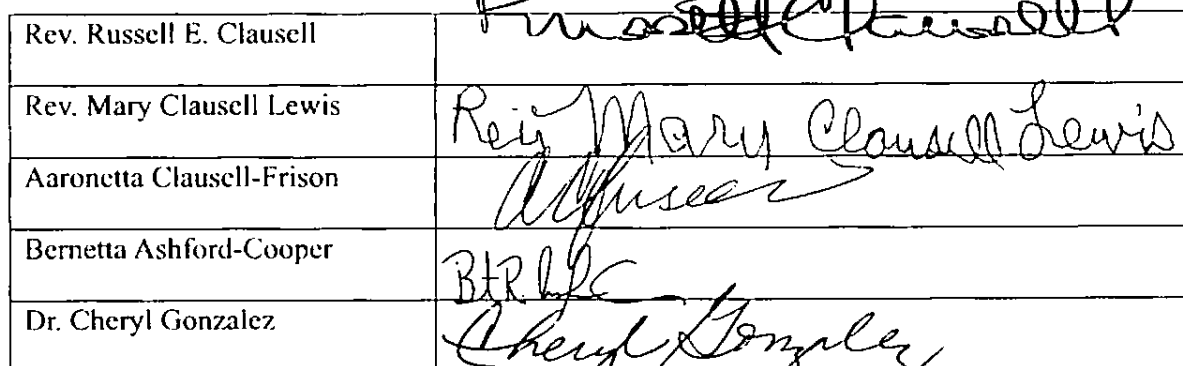 Rev. Russell E. Clausell Russell Clausell
Rev. Mary Clausell Lewis Rev Mary Clausell Lewis
Aaronetta Clausell-Frison
Bernetta Ashford-Cooper
Dr. Cheryl Gonzalez Cheryl Gonzalez